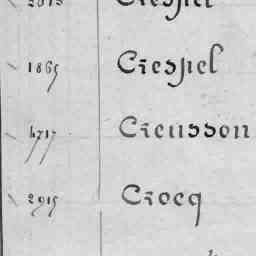 1865 Crespel
4717 Creusson
2915 Crocq